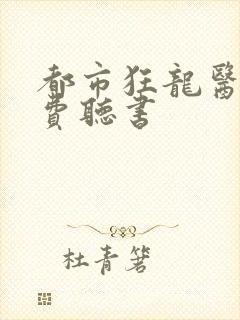 都市狂龍醫
費聽書
杜青箬